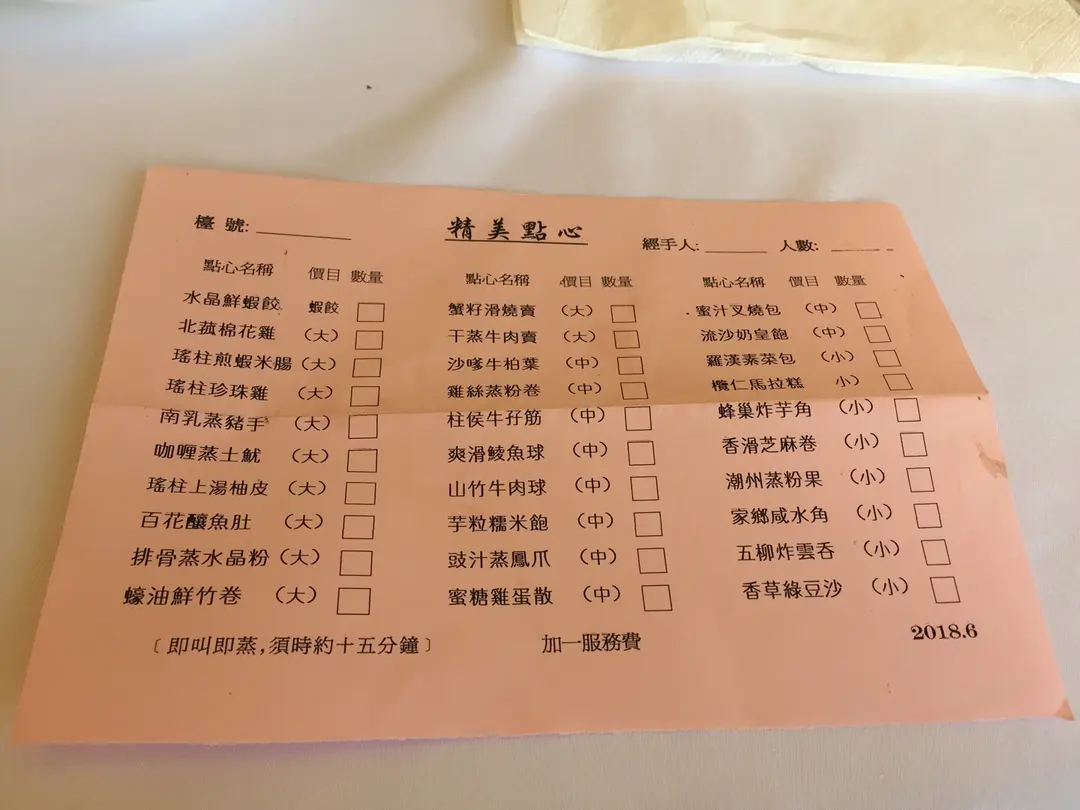 精美點心
檯號:
經手人: 人數:
點心名稱 價目 數量
水晶鮮蝦餃 蝦餃
北菰棉花雞 (大)
瑤柱煎蝦米腸 (大)
瑤柱珍珠雞 (大)
南乳蒸豬手 (大)
咖喱蒸土魷 (大)
瑤柱上湯柚皮 (大)
百花釀魚肚 (大)
排骨蒸水晶粉 (大)
蠔油鮮竹卷 (大)
點心名稱 價目 數量
蟹籽滑燒賣 (大)
干蒸牛肉賣 (大)
沙嗲牛柏葉 (中)
雞絲蒸粉卷 (中)
柱侯牛孖筋 (中)
爽滑鯪魚球 (中)
山竹牛肉球 (中)
芋粒糯米飽 (中)
豉汁蒸鳳爪 (中)
蜜糖雞蛋散 (中)
點心名稱 價目 數量
蜜汁叉燒包 (中)
流沙奶皇飽 (中)
羅漢素菜包 (小)
欖仁馬拉糕 小)
蜂巢炸芋角 (小)
香滑芝麻卷 (小)
潮州蒸粉果 (小)
家鄉咸水角 (小)
五柳炸雲吞 (小)
香草綠豆沙 (小)
〔即叫即蒸,須時約十五分鐘〕
加一服務費
2018.6